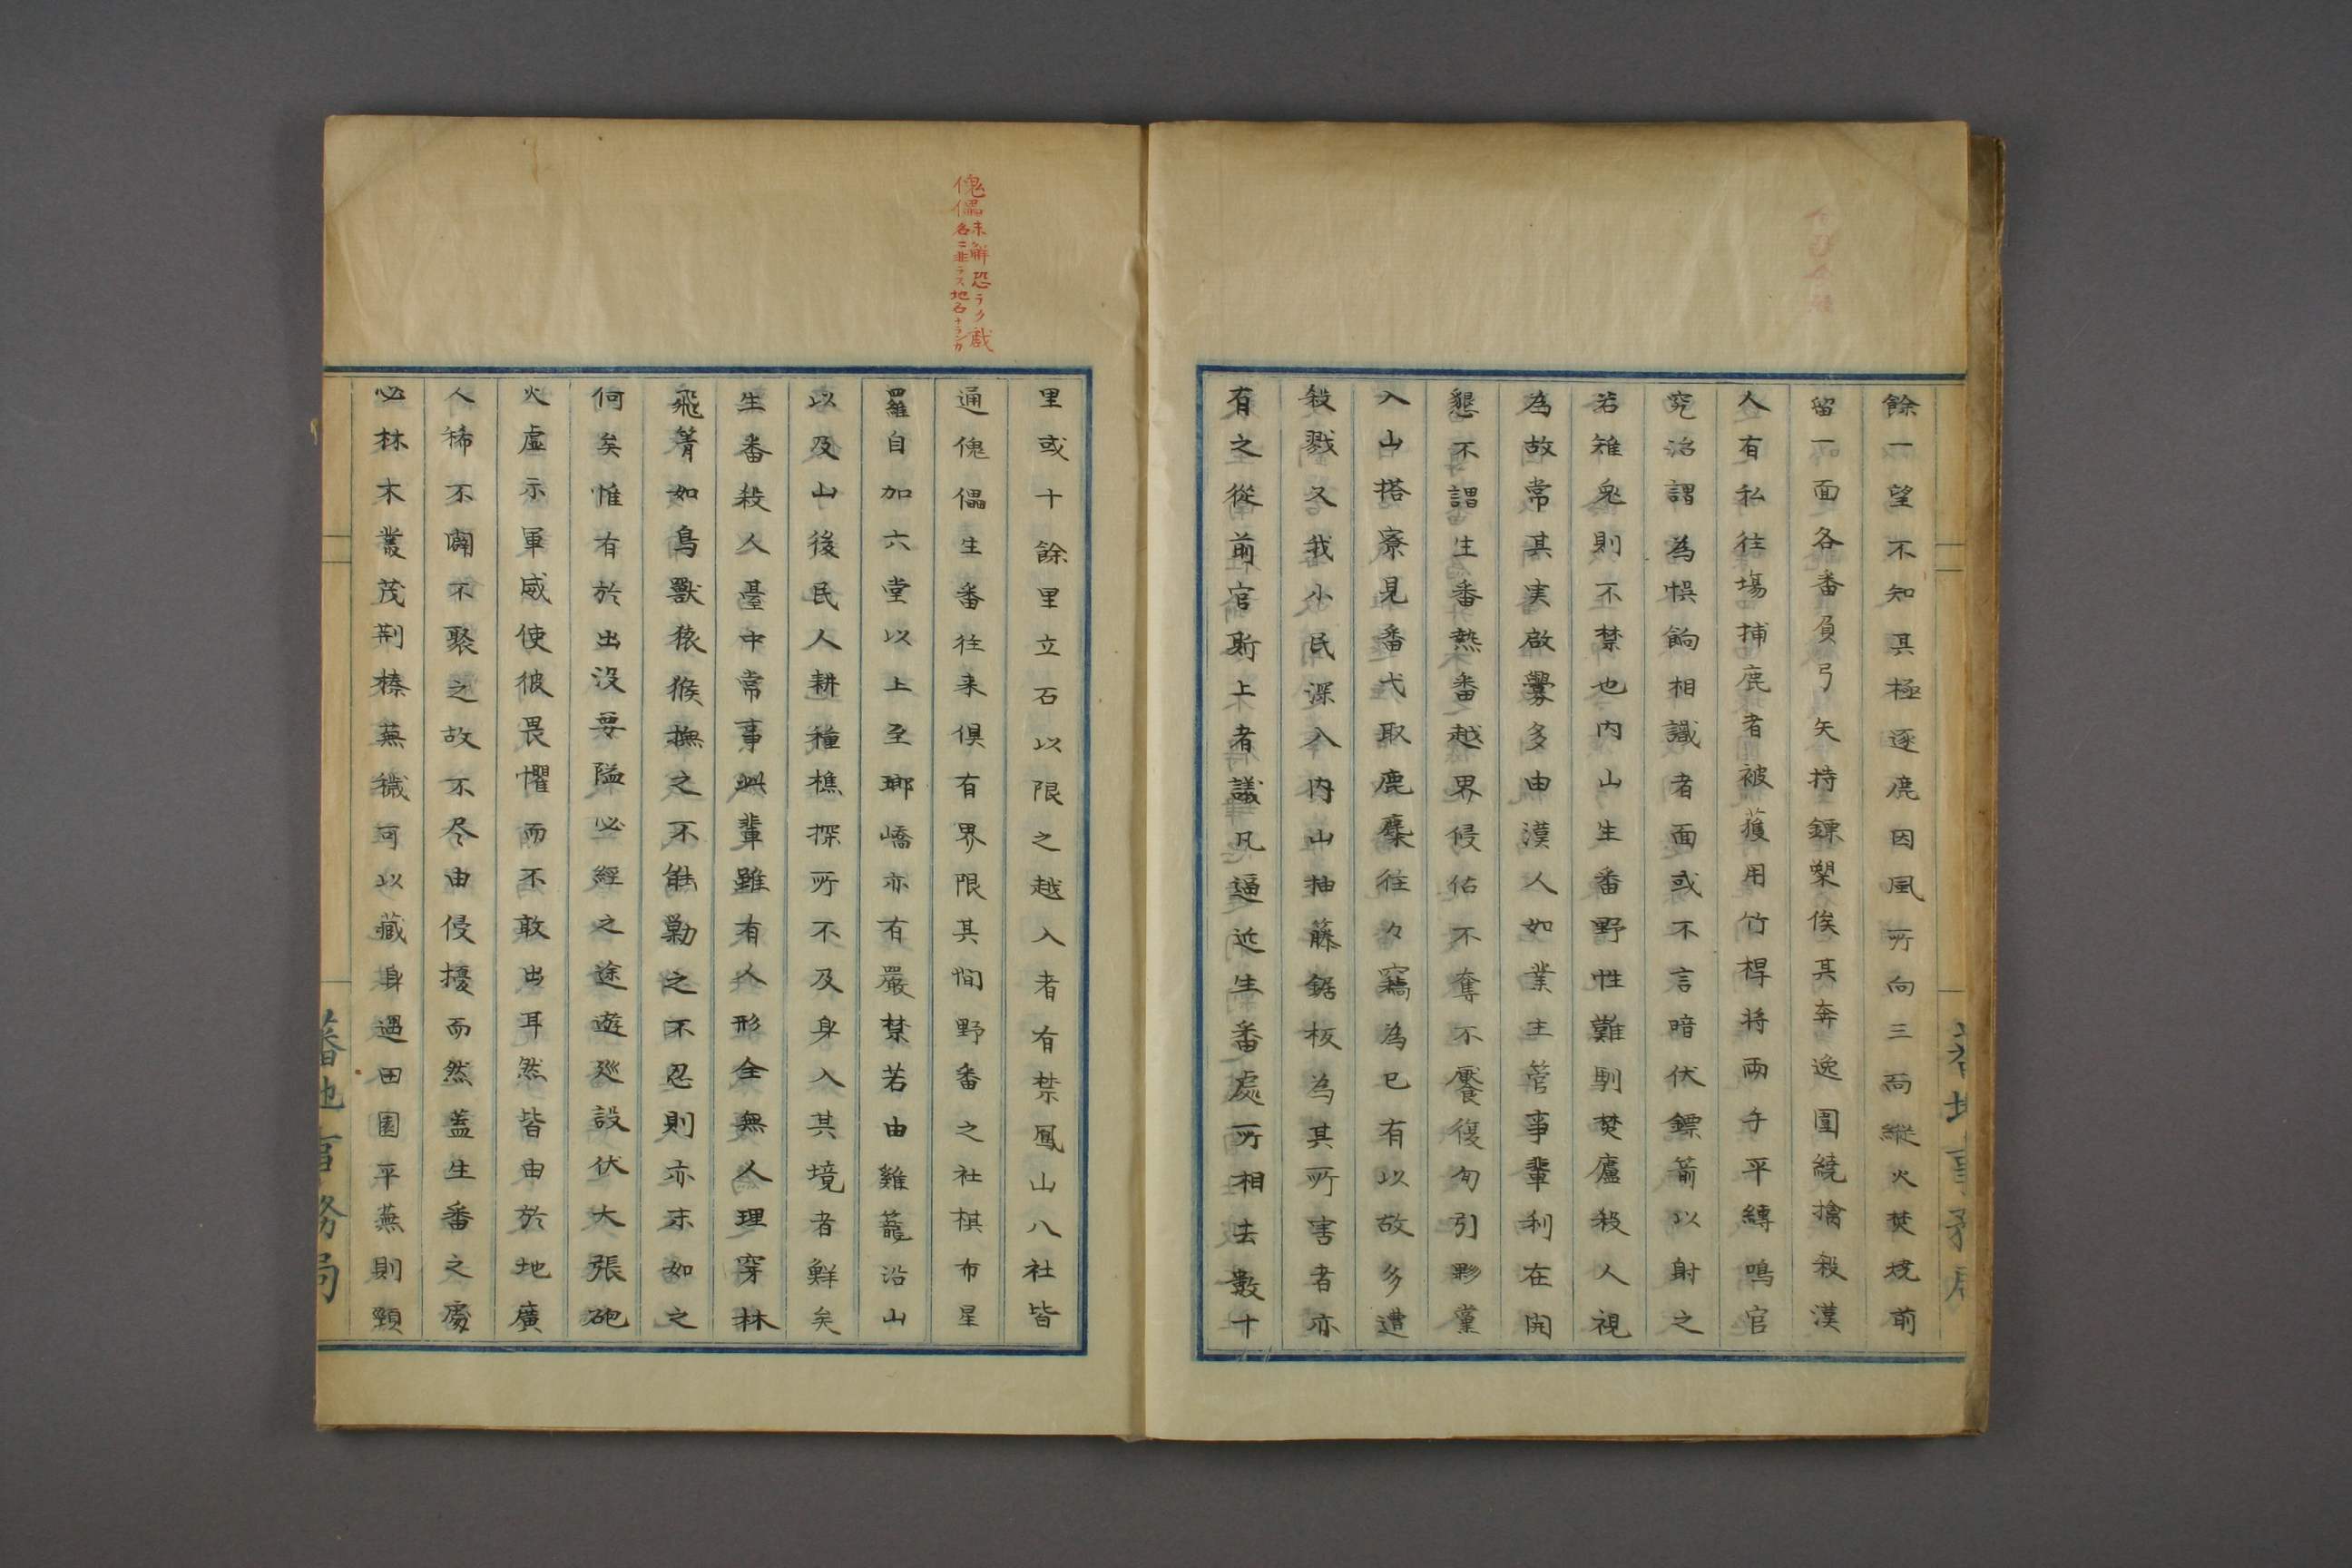 餘一望不知其極逐鹿因風所向三面縱火焚燒前
留一面各番負弓矢持鏢槊俟其奔逸圍繞擒殺漢
人有私往塲捕鹿者被獲用竹桿将兩手平縛鳴官
究治謂為悞餉相識者面或不言暗伏鏢箭以射之
若雉兔則不禁也内山生番野性難馴焚廬殺人視
為故常其実啟釁多由漢人如業主管事輩利在開
懇不謂生番熟番越界侵佔不奪不饜復勾引夥黨
入山搭寮見番弋取鹿麋往々竊為已有以故多遭
殺戮又我小民深入内山抽籐鋸板為其所害者亦
有之從前官斯上者議凡逼近生番處所相去數十
里或十餘里立石以限之越入者有禁鳳山八社皆
通傀儡生番往来俱有界限其間野番之社棋布星
羅自加六堂以上至瑯嶠亦有嚴禁若由雞籠沿山
以及山後民人耕種樵探所不及身入其境者鮮矣
生番殺人臺中常事此輩雖有人形全無人理穿林
飛箐如鳥獸猿猴撫之不能勦之不忍則亦末如之
何矣惟有於出没要隘必經之途遊廵設伏大張砲
火虛示軍威使彼畏懼而不敢出耳然皆由於地廣
人稀不闢不聚之故不尽由侵擾而然蓋生番之處
必林木叢茂荆榛蕪穢可以藏身遇田園平蕪則頸
傀儡未觧恐ラク戯
名ニ非ラス地名ナランカ
蕃地事務局